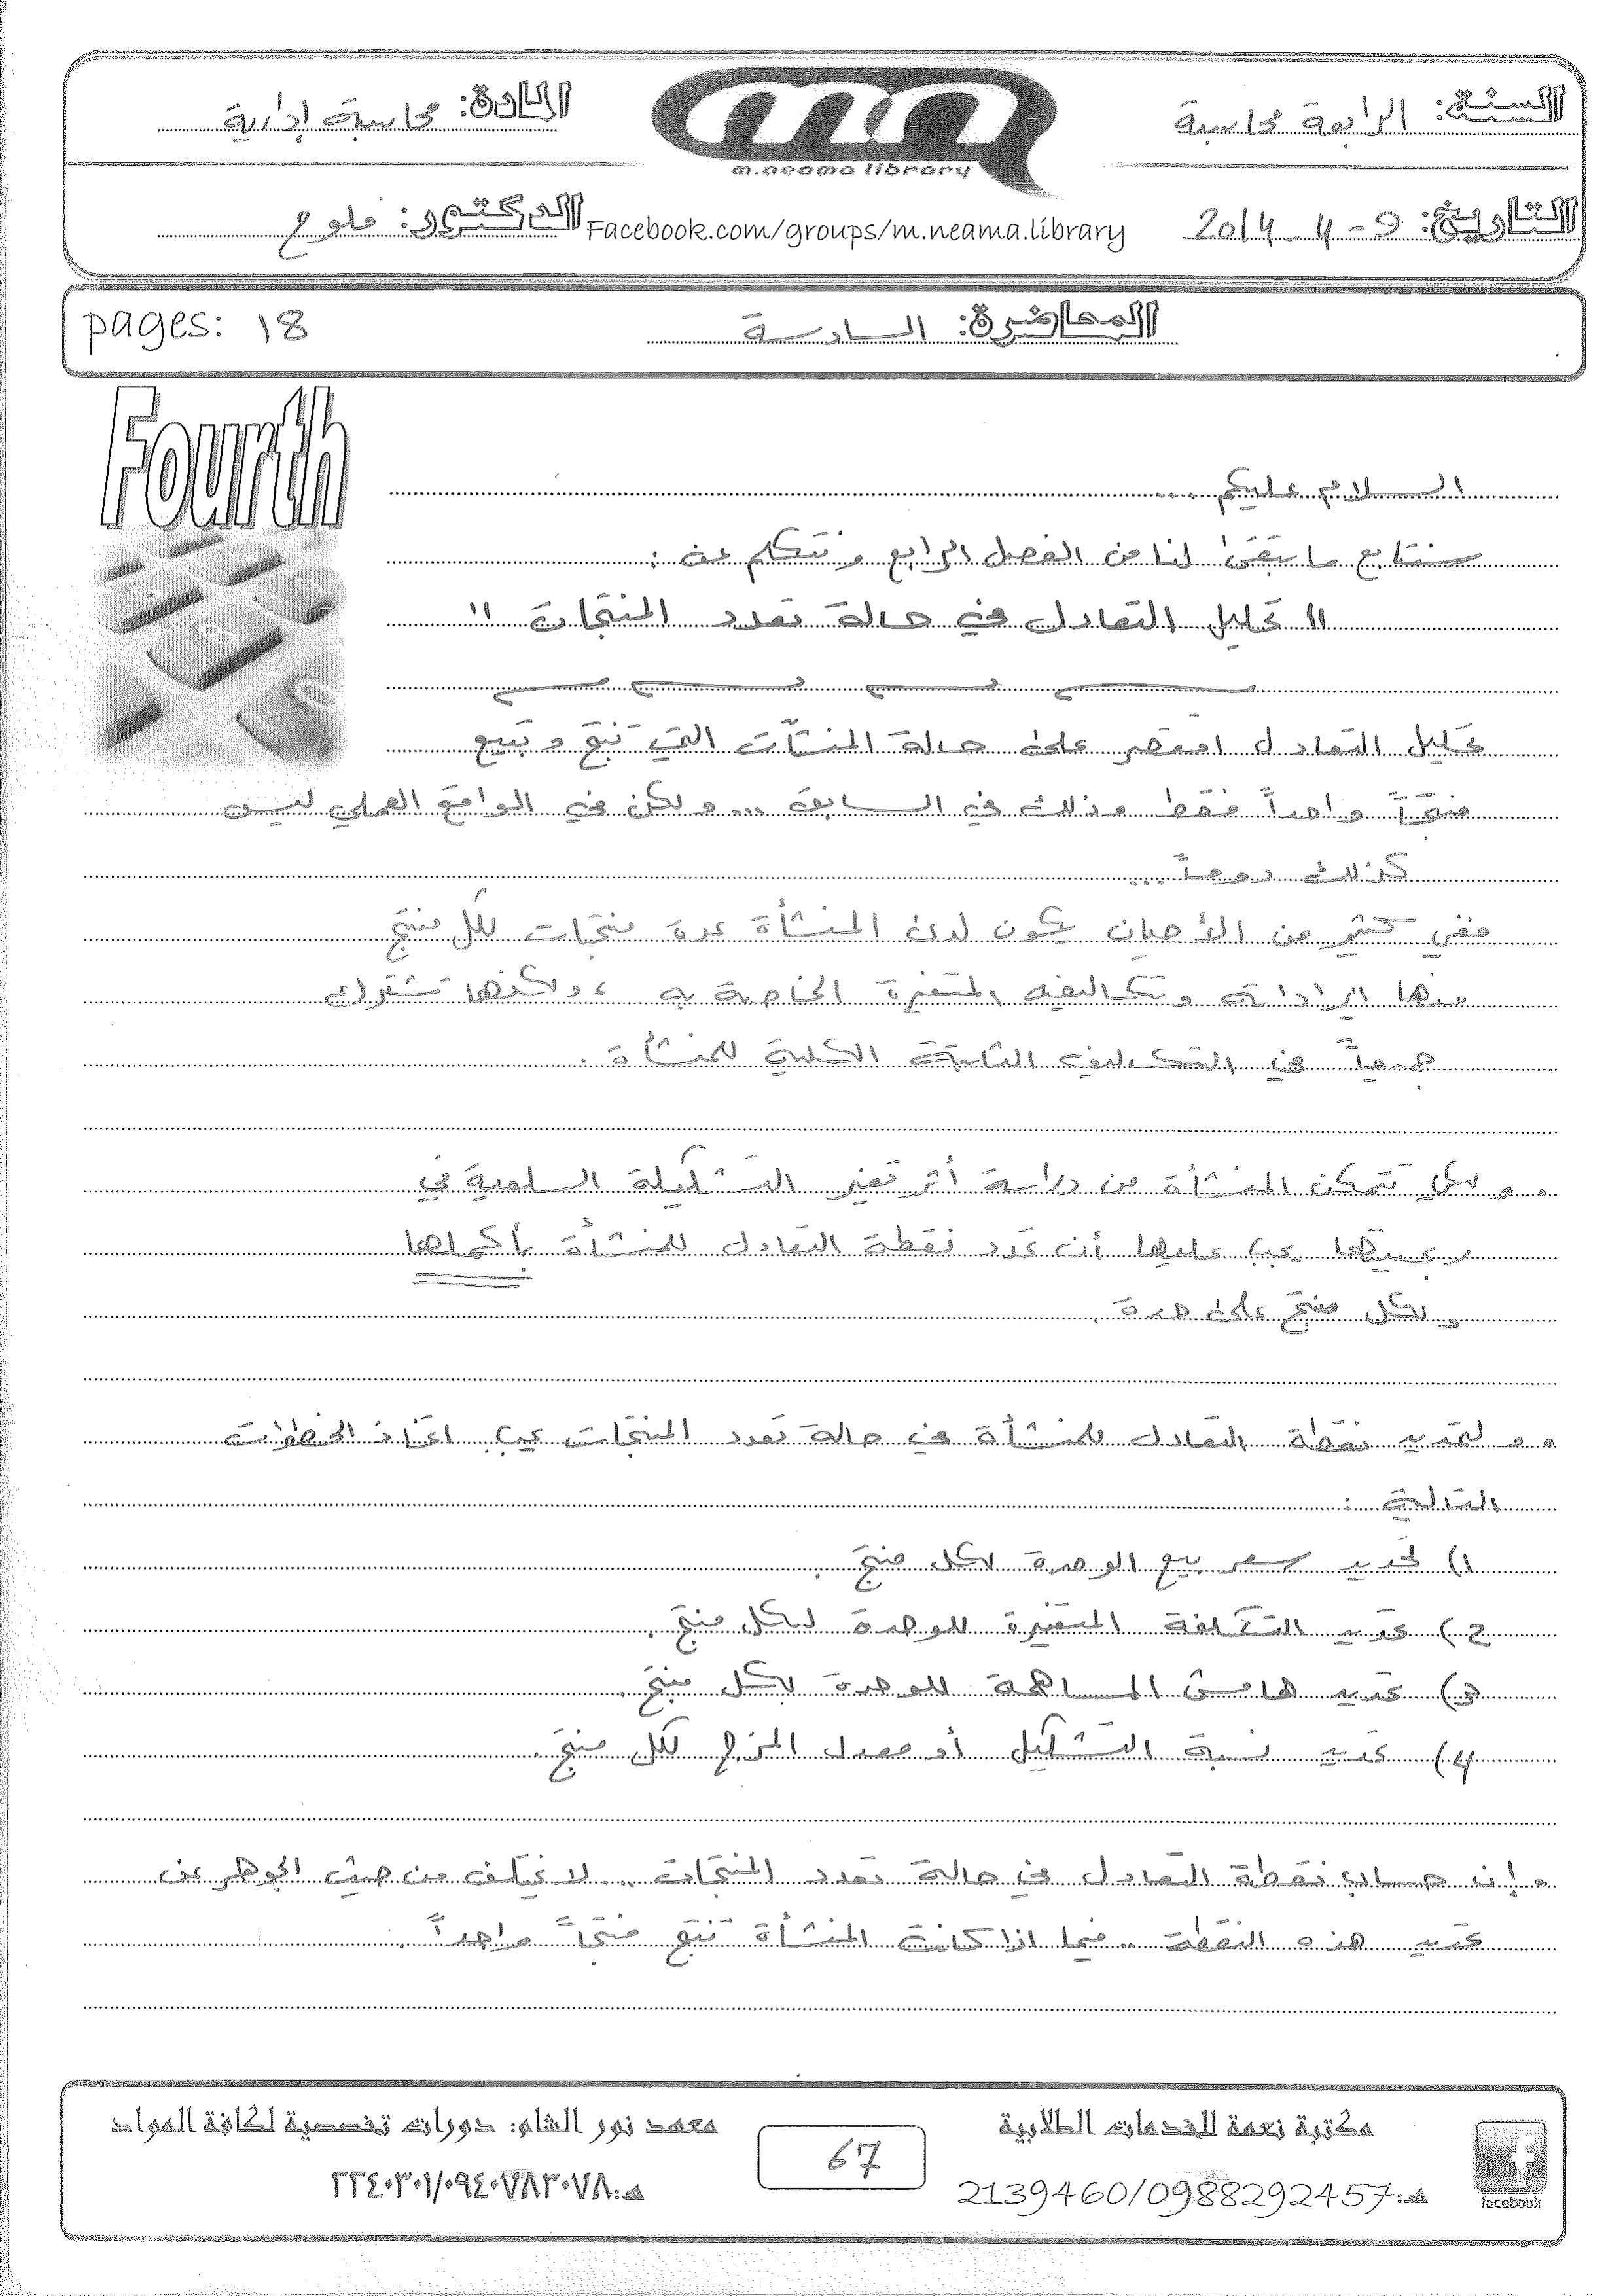 السنة: الرابعة محاسبة
المادة: محاسبة إدارية
m.neama library
التاريخ: 9-4-2014
Facebook.com/groups/m.neama.library
الدكتور: فلوح
المحاضرة: السادسة
pages: 18
Fourth
السلام عليكم ....
سنتابع ما تبقى لنا من الفصل الرابع ونتكلم عن :
" تحليل التعادل في حالة تعدد المنتجات "
تحليل التعادل اقتصر على حالة المنشآت التي تنتج وتبيع
منتجاً واحداً فقط وذلك في السابق ... ولكن في الواقع العملي ليس
كذلك دوماً ...
ففي كثير من الأحيان يكون لدى المنشأة عدة منتجات لكل منتج
منها ايراداته وتكاليفه المتغيرة الخاصة به ، ولكنها تشترك
جميعاً في التكاليف الثابتة الكلية للمنشأة .
• ولكي تتمكن المنشأة من دراسة أثر تغير التشكيلة السلعية في
ربحيتها يجب عليها أن تحدد نقطة التعادل للمنشأة بأكملها
ولكل منتج على حدة .
• ولتحديد نقطة التعادل للمنشأة في حالة تعدد المنتجات يجب اتخاذ الخطوات
التالية :
1) تحديد سعر بيع الوحدة لكل منتج .
2) تحديد التكلفة المتغيرة للوحدة لكل منتج .
3) تحديد هامش المساهمة للوحدة لكل منتج .
4) تحديد نسبة التشكيل أو معدل المزج لكل منتج .
• إن حساب نقطة التعادل في حالة تعدد المنتجات .. لا يختلف من حيث الجوهر عن
تحديد هذه النقطة .. فيما اذا كانت المنشأة تنتج منتجاً واحداً .
مكتبة نعمة للخدمات الطلابية
هـ: 2139460/0988292457
facebook
67
معهد نور الشام: دورات تخصصية لكافة المواد
هـ: ٢٢٤٠٣٠١/٠٩٤٠٧٨٣٠٧٨